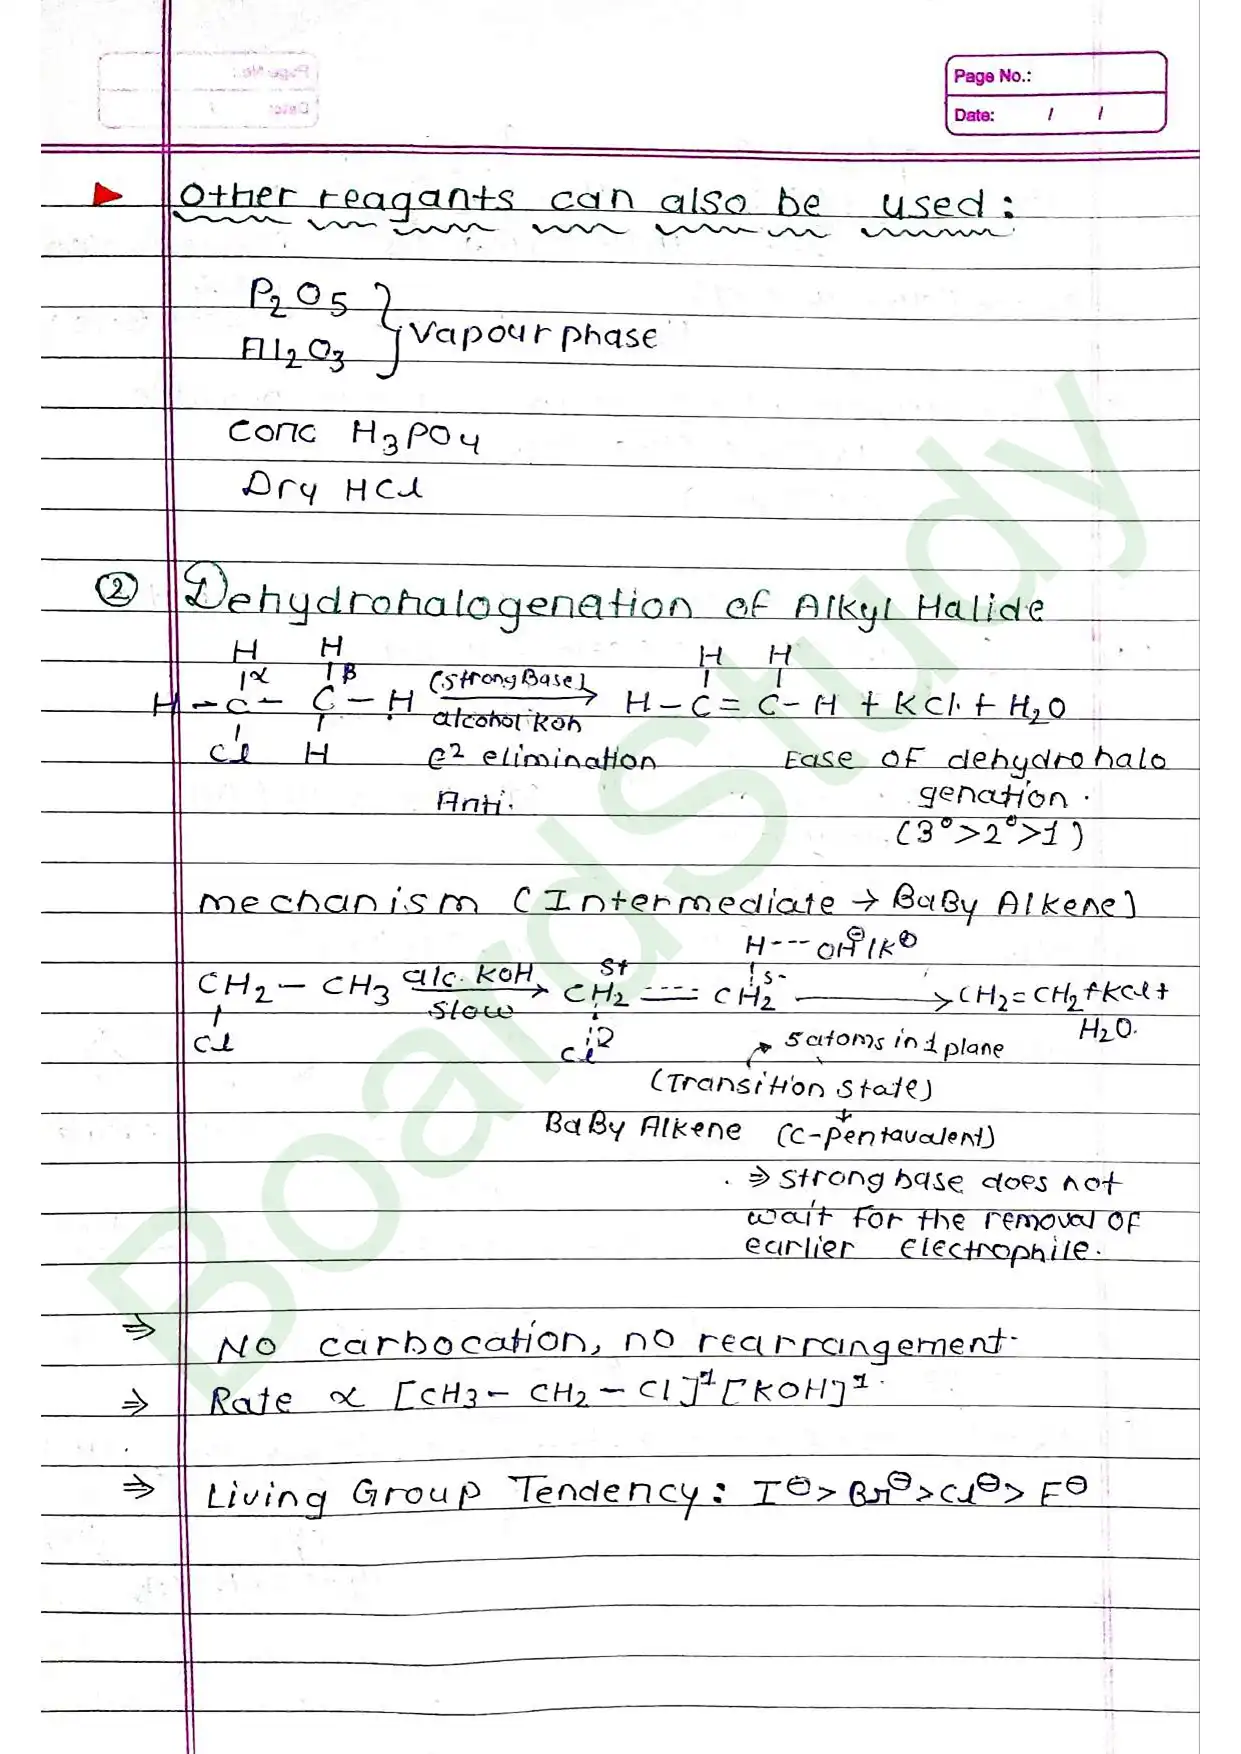 Page No.:
Date: / /
Other reagants can also be used:
P2O5
Al2O3 } Vapour phase
Conc H3PO4
Dry HCl
② Dehydrohalogenation of Alkyl Halide
H H H H
α β (strong Base)
H - C - C - H → H - C = C - H + KCl. + H2O
alcohol KOH
Cl H E² elimination Ease OF dehydrohalo
Anti. genation.
(3°>2°>1)
mechanism (Intermediate → BaBy Alkene)
H --- OH⊖ / K⊕
CH2 - CH3 alc. KOH → CH2 == CH2 → CH2=CH2 + KCl +
slow
Cl Cl H2O.
5 atoms in 1 plane
(Transition state)
BaBy Alkene (C-pentavalent)
⇒ strong base does not
wait for the removal OF
earlier Electrophile.
⇒ No carbocation, no rearrangement.
⇒ Rate ∝ [CH3 - CH2 - Cl]¹ [KOH]¹.
⇒ Living Group Tendency: I⊖ > Br⊖ > Cl⊖ > F⊖
BoardStudy